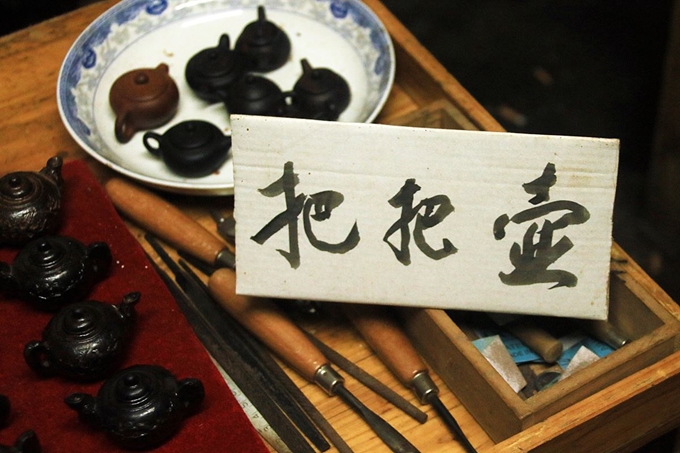 把把壶